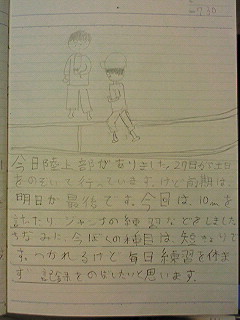 7.30
今日陸上部がありました。27日から土日
をのぞいて行っています。けど前期は、
明日が最後です。今回は、10mを
計ったり ジャンプの練習などをしました
ちなみに、今ぼくの種目は、短きょりで
す。つかれるけど毎日練習を続きま
す。記録をのばしたいと思います。